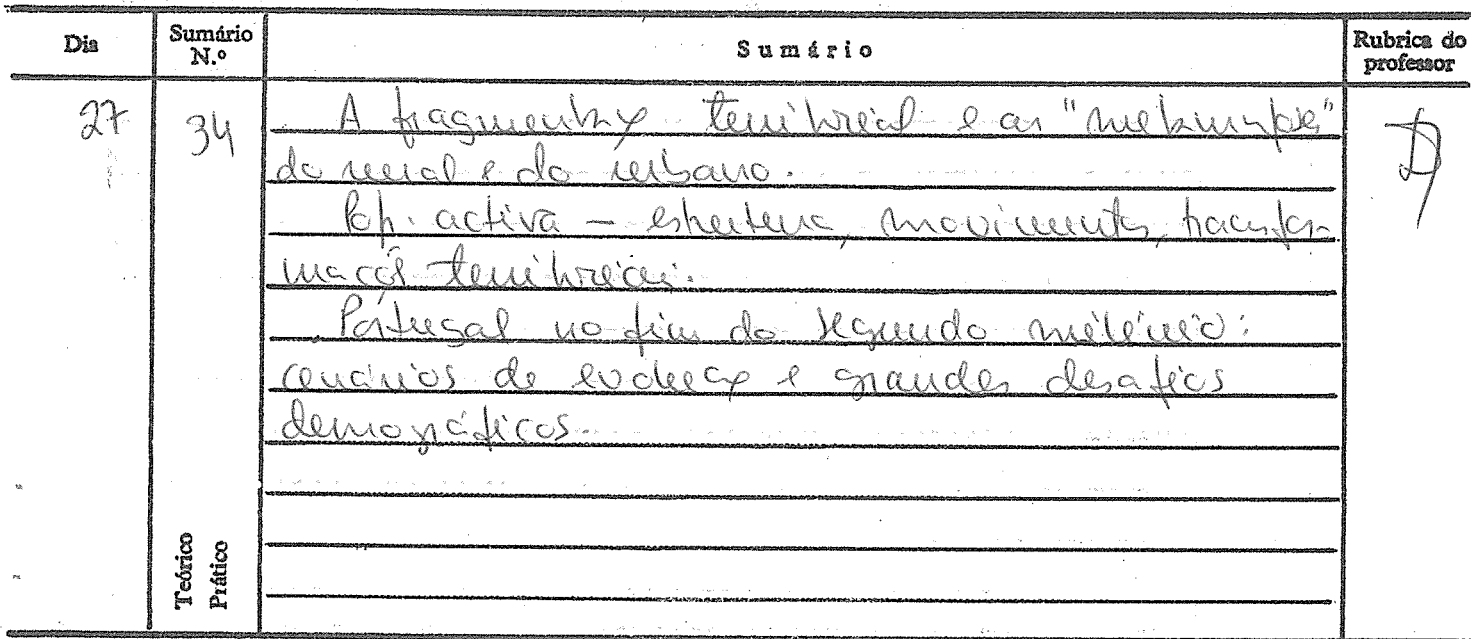 Dia Sumário N.º Sumário Rubrica do professor
27 34 A fragmentação territorial e as "metamorfoses"
do rural e do urbano.
Pop. activa — estrutura, movimentos, transfor-
mações territoriais.
Portugal no fim do segundo milénio:
cenários de evolução e grandes desafios
demográficos.
Teórico
Prático